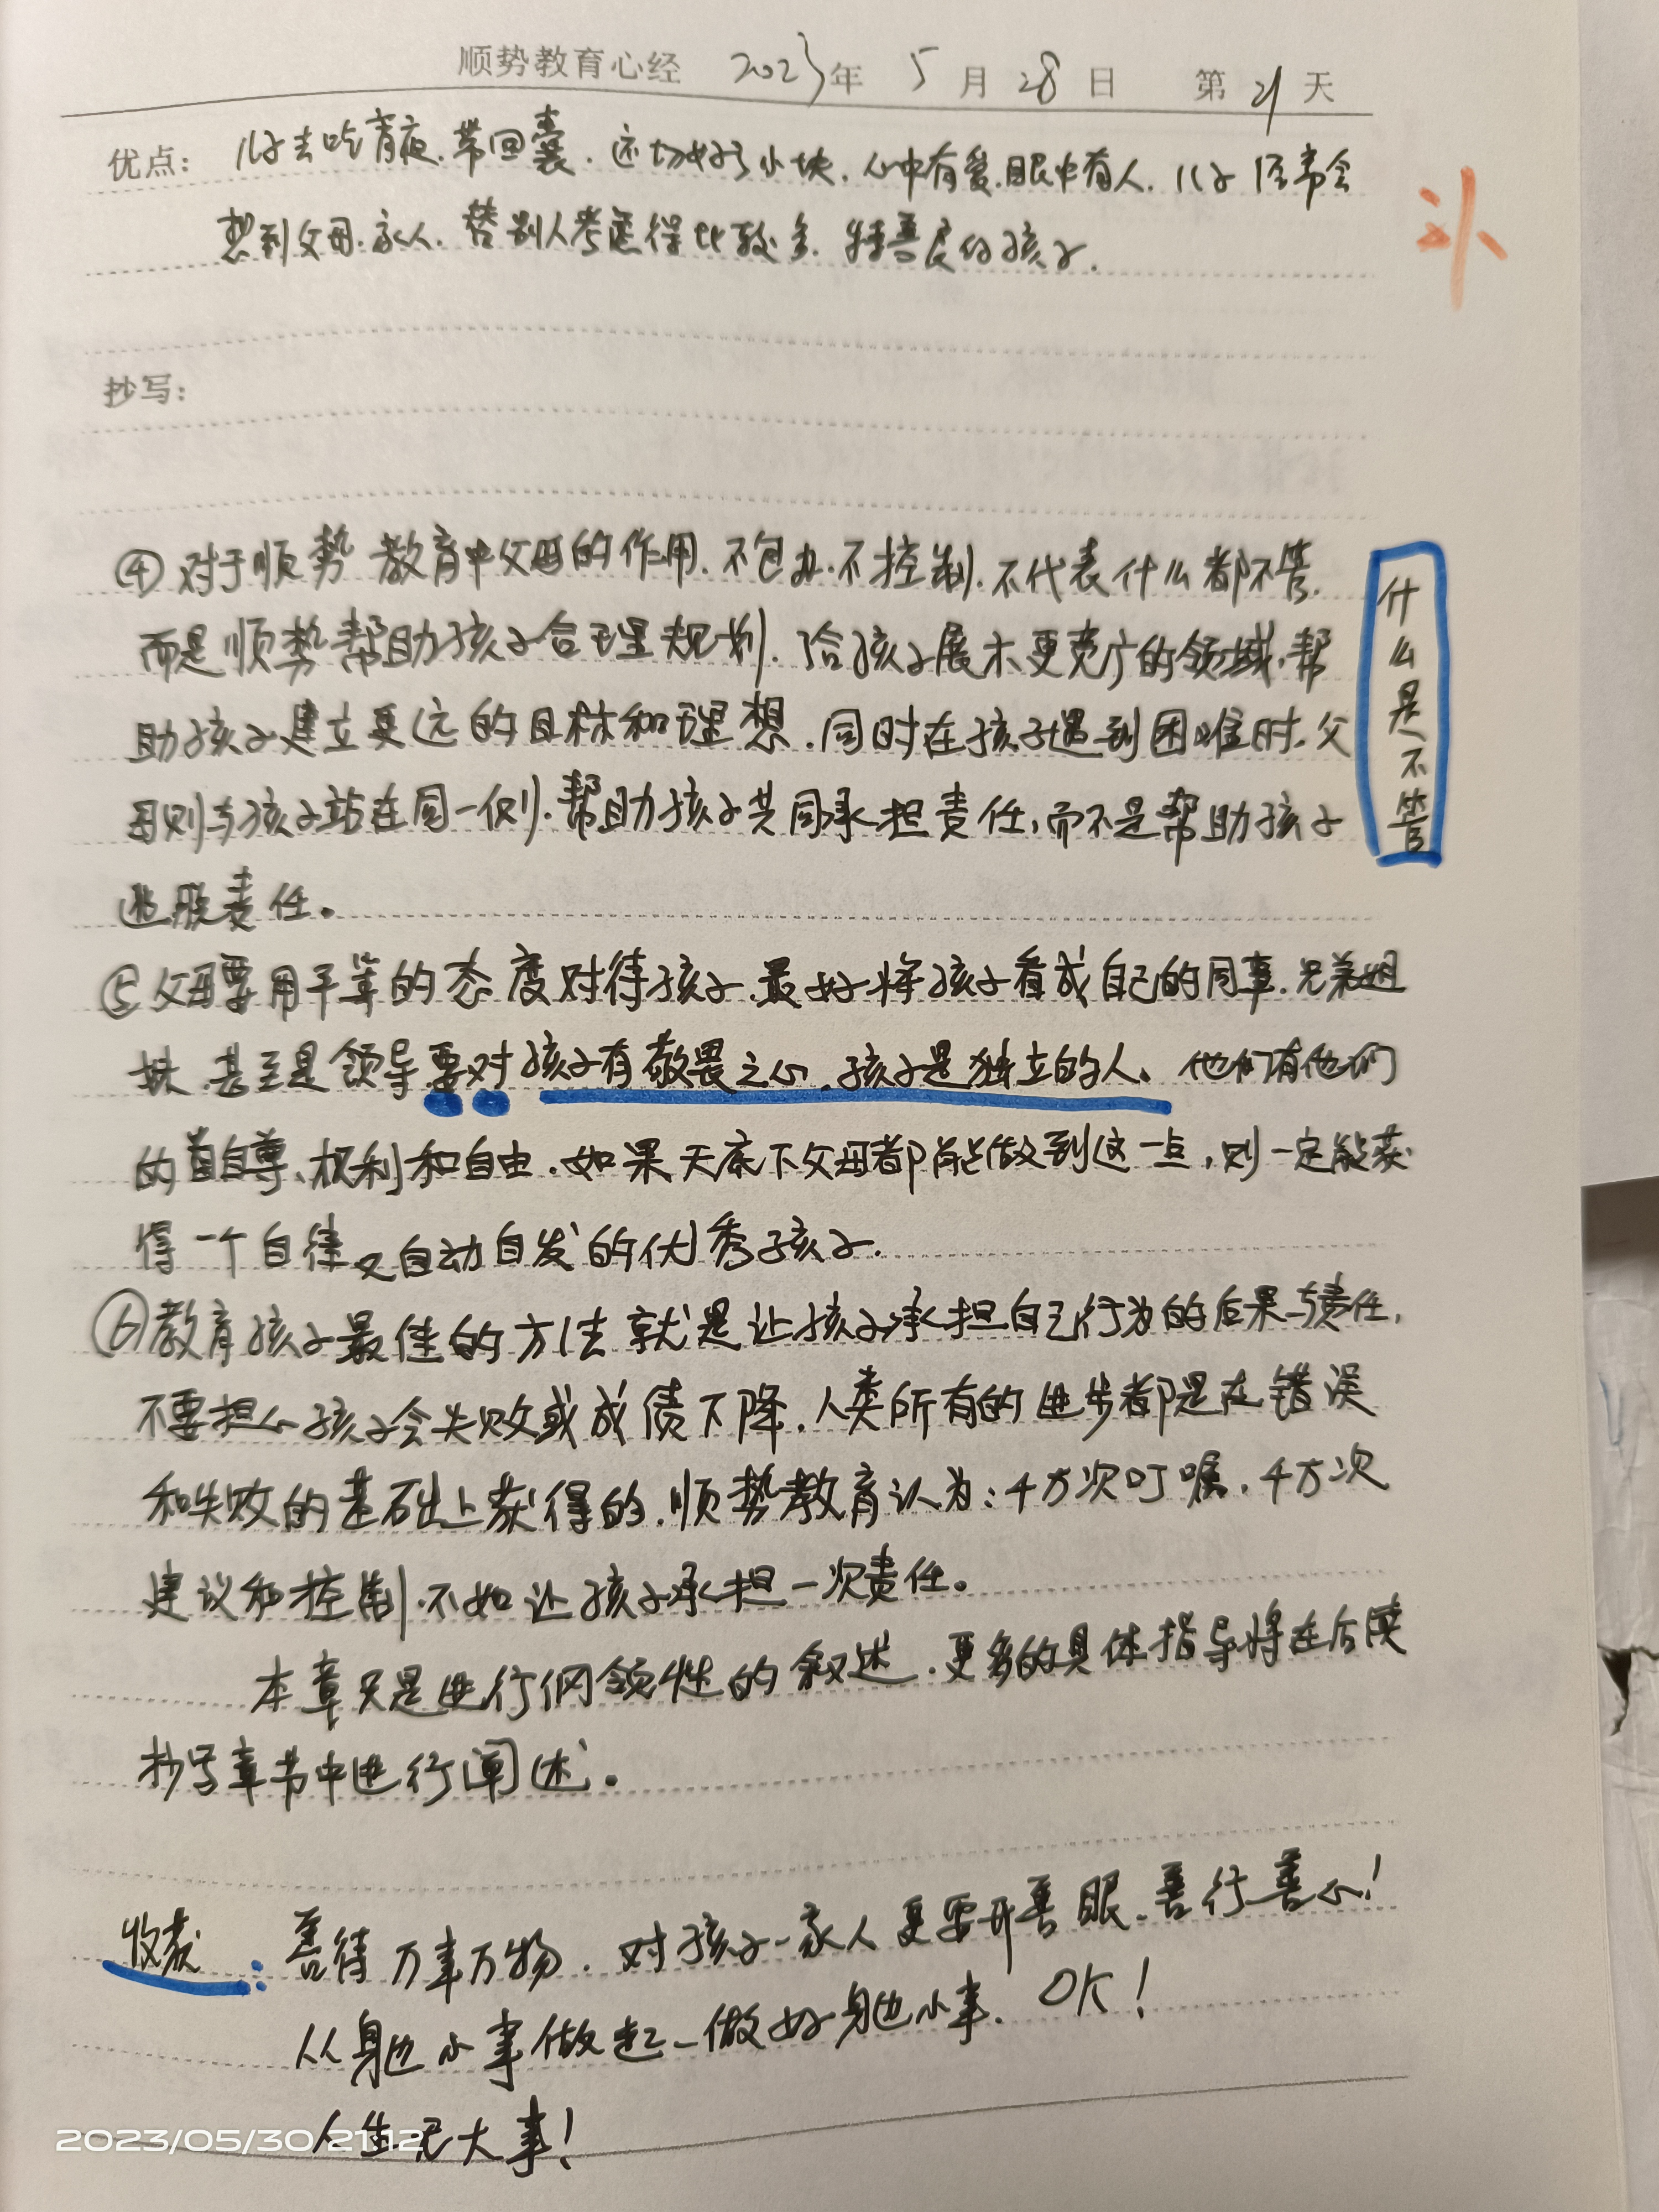 顺势教育心经 2023年 5月28日 第21天
补
优点: 儿子去吃宵夜.带回囊.还切好了小块.心中有爱.眼中有人.儿子经常会
想到父母.家人.替别人考虑得比较多.特善良的孩子.
抄写:
④对于顺势教育中父母的作用.不包办.不控制.不代表什么都不管.
而是顺势帮助孩子合理规划.给孩子展示更宽广的领域,帮
助孩子建立更远的目标和理想.同时在孩子遇到困难时.父
母则与孩子站在同一侧.帮助孩子共同承担责任,而不是帮助孩子
逃脱责任。
什么是不管
⑤父母要用平等的态度对待孩子.最好将孩子看成自己的同事.兄弟姐
妹.甚至是领导要对孩子有敬畏之心.孩子是独立的人、他们有他们
的自尊、权利和自由.如果天底下父母都能做到这一点,则一定能获
得一个自律又自动自发的优秀孩子.
⑥教育孩子最佳的方法就是让孩子承担自己行为的后果与责任,
不要担心孩子会失败或成绩下降.人类所有的进步都是在错误
和失败的基础上获得的.顺势教育认为:千万次叮嘱.千万次
建议和控制.不如让孩子承担一次责任。
本章只是进行纲领性的叙述.更多的具体指导将在后续
抄写章节中进行阐述。
收获: 善待万事万物.对孩子、家人更要开善眼、善行善心!
从身边小事做起_做好身边小事、OK!
人生无大事!
2023/05/30 21:12